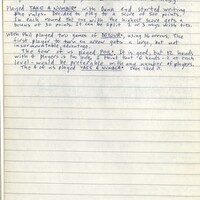 Played TAKE A NUMBER with Dana and started writing
the rules. Decided to play to a score of 500 points.
In each round the one with the highest score gets a
bonus of 30 points. It can be split 2 or 3 ways with ties.
With Phil played two games of, using 16 arrows. The
first player to turn an arrow gets a large, but not
insurmountable, advantage.
The four of us played. It is good, but 12 hands
with 4 players is too long. I think that 6 hands - 2 at each
level - would be preferable with any number of players.
The 4 of us played TAKE A NUMBER. They liked it.